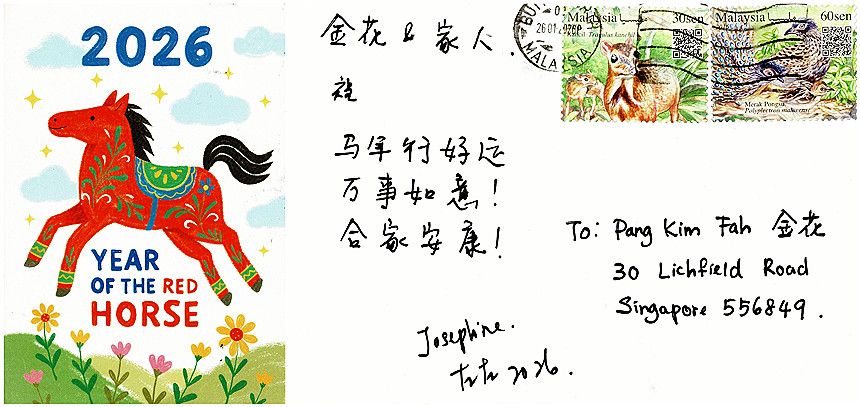 2026
YEAR
OF THE RED
HORSE
金花 & 家人.
祝
马年行好运
万事如意!
合家安康!
Josephine.
2026.
Malaysia 30sen
Tragulus kanchil
Malaysia 60sen
Merak Pongsu
Polyplectron malacense
26 01
MALAYSIA
To: Pang Kim Fah 金花
30 Lichfield Road
Singapore 556849.